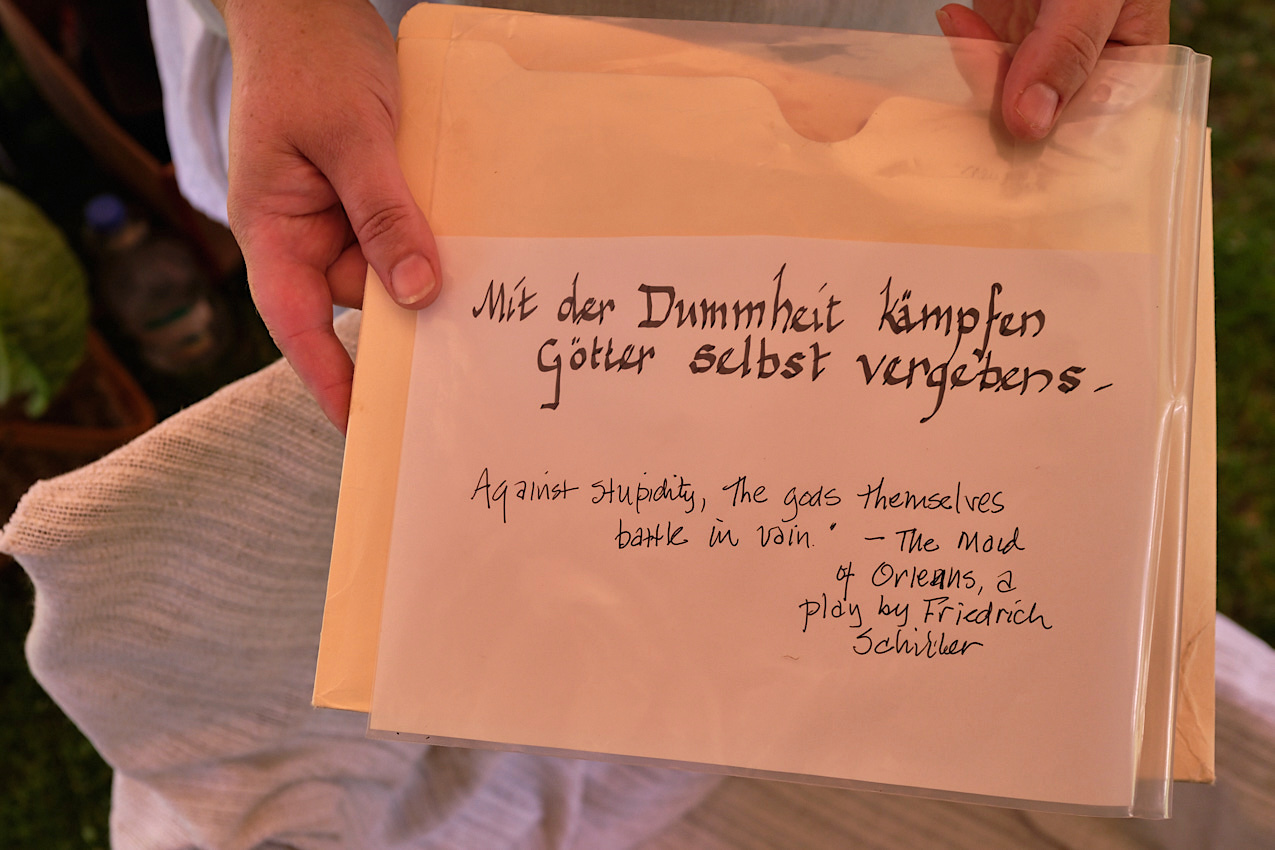 Mit der Dummheit kämpfen
Götter selbst vergebens.
Against stupidity, the gods themselves
battle in vain." — The Maid
of Orleans, a
play by Friedrich
Schiller